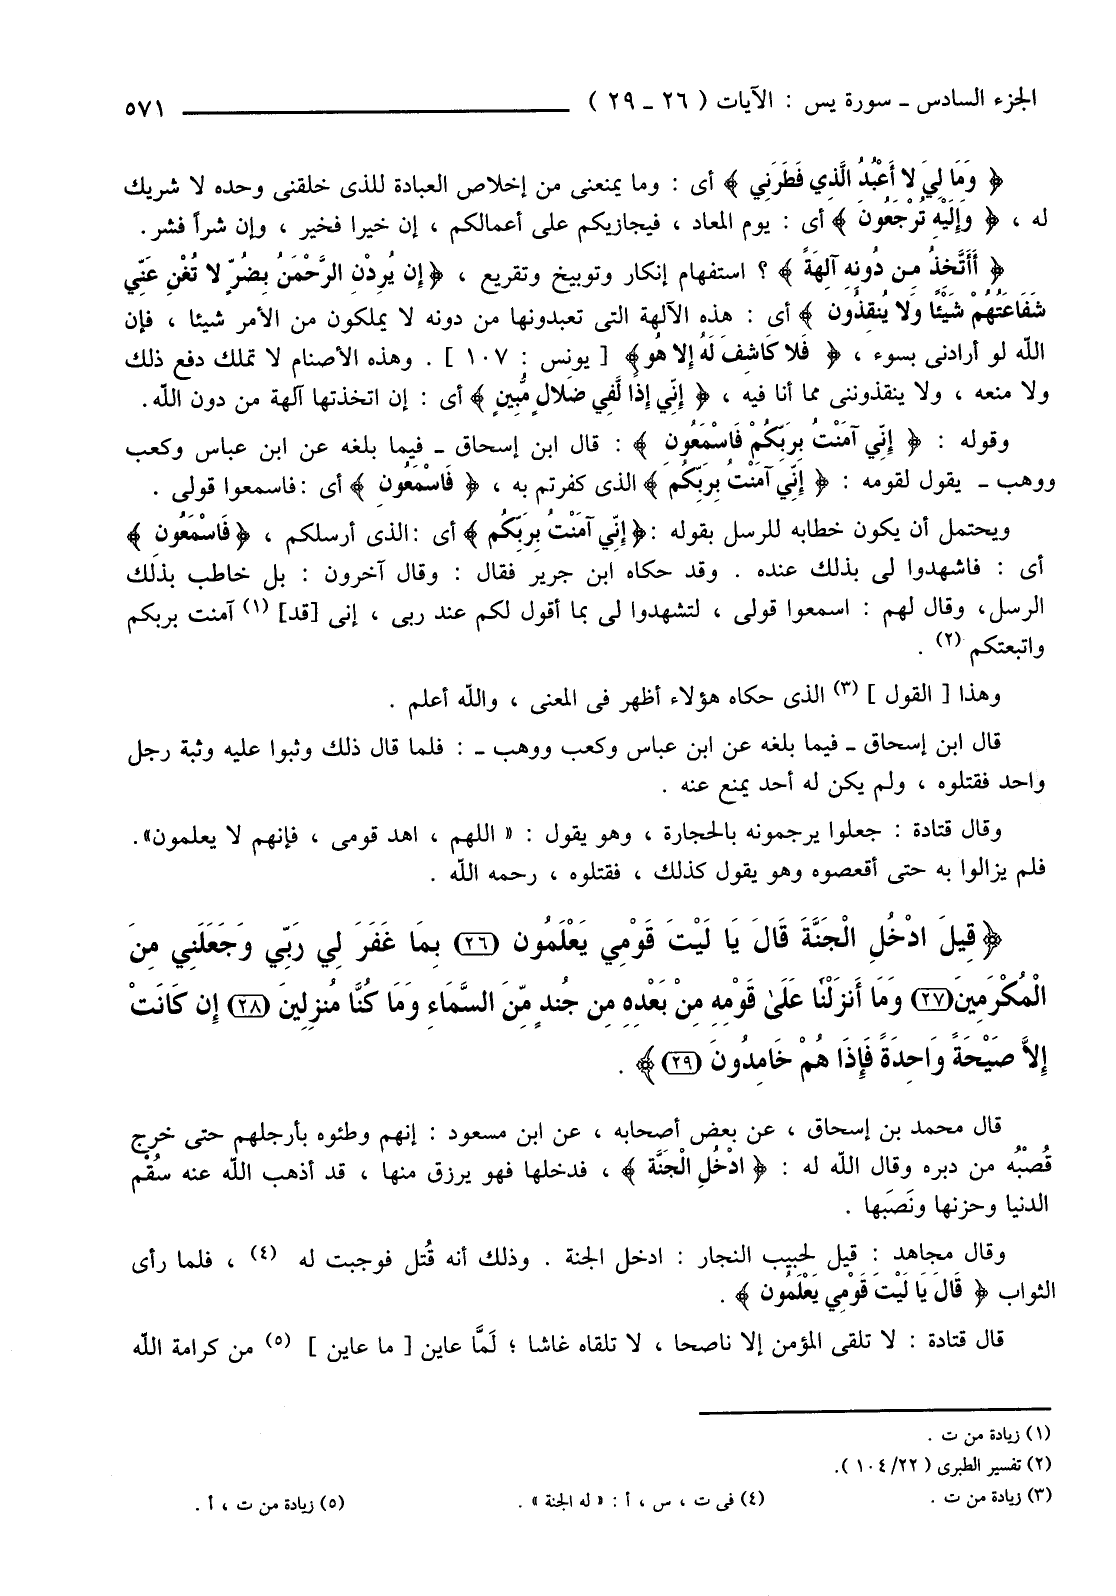 الجزء السادس ـ سورة يس : الآيات ( ٢٦ ـ ٢٩ ) ٥٧١
﴿ وَمَا لِيَ لا أَعْبُدُ الَّذِي فَطَرَنِي ﴾ أى : وما يمنعنى من إخلاص العبادة للذى خلقنى وحده لا شريك
له ، ﴿ وَإِلَيْهِ تُرْجَعُونَ ﴾ أى : يوم المعاد ، فيجازيكم على أعمالكم ، إن خيرا فخير ، وإن شراً فشر.
﴿ أَأَتَّخِذُ مِن دُونِهِ آلِهَةً ﴾ ؟ استفهام إنكار وتوبيخ وتقريع ، ﴿ إِن يُرِدْنِ الرَّحْمَنُ بِضُرٍّ لا تُغْنِ عَنِّي
شَفَاعَتُهُمْ شَيْئًا وَلا يُنقِذُونِ ﴾ أى : هذه الآلهة التى تعبدونها من دونه لا يملكون من الأمر شيئا ، فإن
اللّه لو أرادنى بسوء ، ﴿ فَلا كَاشِفَ لَهُ إِلا هُوَ﴾ [ يونس : ١٠٧ ] . وهذه الأصنام لا تملك دفع ذلك
ولا منعه ، ولا ينقذوننى مما أنا فيه ، ﴿ إِنِّي إِذًا لَّفِي ضَلالٍ مُّبِينٍ ﴾ أى : إن اتخذتها آلهة من دون اللّه.
وقوله : ﴿ إِنِّي آمَنْتُ بِرَبِّكُمْ فَاسْمَعُونِ ﴾ : قال ابن إسحاق ـ فيما بلغه عن ابن عباس وكعب
ووهب ـ يقول لقومه : ﴿ إِنِّي آمَنْتُ بِرَبِّكُمْ ﴾ الذى كفرتم به ، ﴿ فَاسْمَعُونِ ﴾ أى :فاسمعوا قولى .
ويحتمل أن يكون خطابه للرسل بقوله :﴿ إِنِّي آمَنْتُ بِرَبِّكُمْ ﴾ أى :الذى أرسلكم ، ﴿ فَاسْمَعُونِ ﴾
أى : فاشهدوا لى بذلك عنده . وقد حكاه ابن جرير فقال : وقال آخرون : بل خاطب بذلك
الرسل، وقال لهم : اسمعوا قولى ، لتشهدوا لى بما أقول لكم عند ربى ، إنى [قد] (١) آمنت بربكم
واتبعتكم (٢) .
وهذا [ القول ] (٣) الذى حكاه هؤلاء أظهر فى المعنى ، واللّه أعلم .
قال ابن إسحاق ـ فيما بلغه عن ابن عباس وكعب ووهب ـ : فلما قال ذلك وثبوا عليه وثبة رجل
واحد فقتلوه ، ولم يكن له أحد يمنع عنه .
وقال قتادة : جعلوا يرجمونه بالحجارة ، وهو يقول : « اللهم ، اهد قومى ، فإنهم لا يعلمون».
فلم يزالوا به حتى أقعصوه وهو يقول كذلك ، فقتلوه ، رحمه اللّه .
﴿ قِيلَ ادْخُلِ الْجَنَّةَ قَالَ يَا لَيْتَ قَوْمِي يَعْلَمُونَ (٢٦) بِمَا غَفَرَ لِي رَبِّي وَجَعَلَنِي مِنَ
الْمُكْرَمِينَ (٢٧) وَمَا أَنزَلْنَا عَلَىٰ قَوْمِهِ مِنْ بَعْدِهِ مِن جُندٍ مِّنَ السَّمَاءِ وَمَا كُنَّا مُنزِلِينَ (٢٨) إِن كَانَتْ
إِلاَّ صَيْحَةً وَاحِدَةً فَإِذَا هُمْ خَامِدُونَ (٢٩) ﴾ .
قال محمد بن إسحاق ، عن بعض أصحابه ، عن ابن مسعود : إنهم وطئوه بأرجلهم حتى خرج
قُصْبُه من دبره وقال اللّه له : ﴿ ادْخُلِ الْجَنَّةَ ﴾ ، فدخلها فهو يرزق منها ، قد أذهب اللّه عنه سُقْم
الدنيا وحزنها ونَصَبها .
وقال مجاهد : قيل لحبيب النجار : ادخل الجنة . وذلك أنه قُتل فوجبت له (٤) ، فلما رأى
الثواب ﴿ قَالَ يَا لَيْتَ قَوْمِي يَعْلَمُونَ ﴾ .
قال قتادة : لا تلقى المؤمن إلا ناصحا ، لا تلقاه غاشا ؛ لَمَّا عاين [ ما عاين ] (٥) من كرامة اللّه
(١) زيادة من ت .
(٢) تفسير الطبرى ( ٢٢/ ١٠٤ ).
(٣) زيادة من ت . (٤) فى ت ، س ، أ : « له الجنة » . (٥) زيادة من ت ، أ .